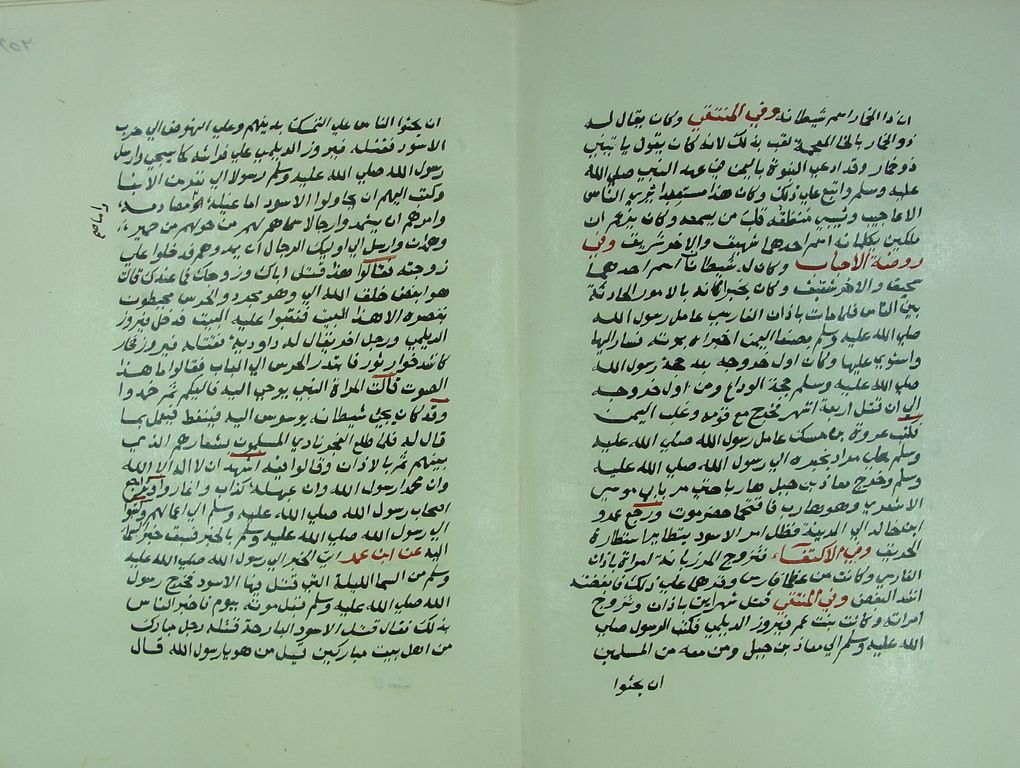 ان ذا الخمار اسم شيطانه وفي المنتقي وكان يقال له
ذو الخمار بالخا المعجمة لقب بذلك لانه كان يقول ياتيني
ذو خمار وقد ادعي النبوة باليمن في عهد النبي صلي الله
عليه وسلم واتبع علي ذلك وكان هذا مشعبذا يري الناس
الاعاجيب ويسبي منطقه قلب من يسمعه وكان يزعم ان
ملكين يكلمانه اسم احدهما شهيق والاخر شريف وفي
روضة الاحباب وكان له شيطانان اسم احدهما
سحيق والاخر شقيق وكان يخبرانه بالامور الحادثة
بين الناس فلما مات باذان الفارسي عامل رسول الله
صلي الله عليه وسلم بصنعا اليمن اخبراه بموته فسار اليها
واستولي عليها وكان اول خروجه بعد حجة رسول الله
صلي الله عليه وسلم حجة الوداع ومن اول خروجه
الي ان قتل اربعة اشهر فخرج مع قومه وغلب اليمن
فكتب فروة بن مسيك عامل رسول الله صلي الله عليه
وسلم علي مراد بخبره الي رسول الله صلي الله عليه
وسلم وخرج معاذ بن جبل هاربا حتي مر بابي موسي
الاشعري وهو بمارب فاقتحما حضرموت ورجع عمرو
ابن خالد الي المدينة فظل امر الاسود يتطاير استطارة
الحريق وفي الاكتفاء فتزوج المرزبانة امراة باذان
الفارسي وكانت من عظما فارس وقسرها علي ذلك فابغضته
اشد البغض وفي المنتقي قتل شهر ابن باذان وتزوج
امراته وكانت بنت عم فيروز الديلمي فكتب الرسول صلي
الله عليه وسلم الي معاذ بن جبل ومن معه من المسلمين
ان يحثوا
ان يحثوا الناس علي التمسك بدينهم وعلي النهوض الي حرب
الاسود فقتله فيروز الديلمي علي فراشه كما سيجي وارسل
رسول الله صلي الله عليه وسلم رسولا الي نفر من الابنا
وكتب اليهم ان يحاولوا الاسود اما غيلة واما مصادمة
وامرهم ان يستنجدوا رجالا سماهم لهم ممن حولهم من حمير
وهمدان وارسل الي اوليك الرجال ان يمدوهم فدخلوا علي
زوجته فقالوا هذا قتل اباك وزوجك فما عندك قالت
هو ابغض خلق الله الي وهو مجرد والحرس محيطون
بقصره الا هذا البيت فنقبوا عليه البيت فدخل فيروز
الديلمي ورجل اخر يقال له داودية فقتله فيروز فخار
كاشد خوار ثور فابتدر الحرس الي الباب فقالوا ما هذا
الصوت قالت المراة النبي يوحي اليه فاليكم ثم خمدوا
وقد كان يجي شيطانه يوسوس اليه فيغط فيعمل بما
قال له فلما طلع الفجر نادي المسلمون بشعارهم الذي
بينهم ثم بالاذان وقالوا فيه اشهد ان لا اله الا الله
وان محمدا رسول الله وان عبهلة كذاب واغاروا وتراجع
اصحاب رسول الله صلي الله عليه وسلم الي اعمالهم وكتبوا
الي رسول الله صلي الله عليه وسلم بالخبر فسبق خبر السما
اليه عن ابن عمر اتي الخبر الي رسول الله صلي الله عليه
وسلم من السما الليلة التي قتل فيها الاسود فخرج رسول
الله صلي الله عليه وسلم قبل موته بيوم فاخبر الناس
بذلك فقال قتل الاسود البارحة قتله رجل مبارك
من اهل بيت مباركين قيل من هو يا رسول الله قال